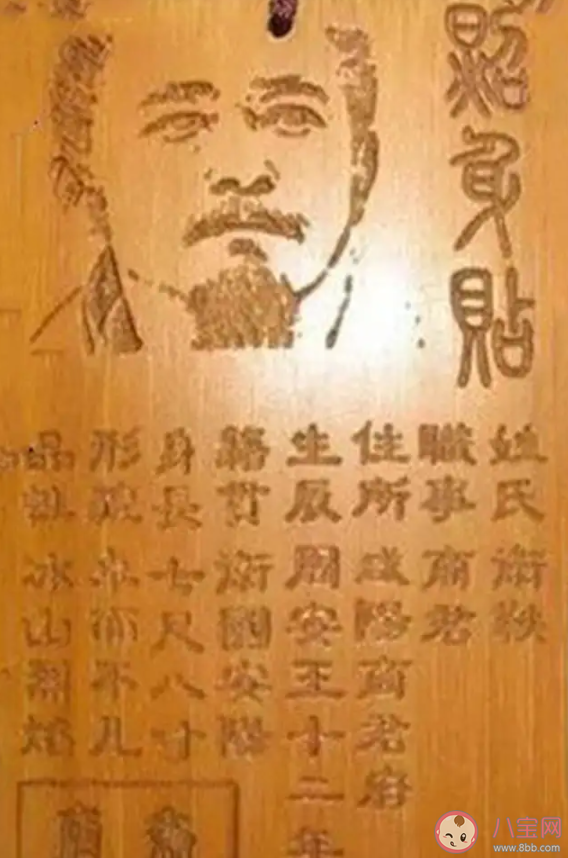 照身貼
姓氏 衛鞅
職事 商君
住所 咸陽商君府
生辰 周安王十二年
籍貫 衛國安陽
身長 七尺八寸
形 不凡
品 冰山烈焰
八宝网
www.8bb.com